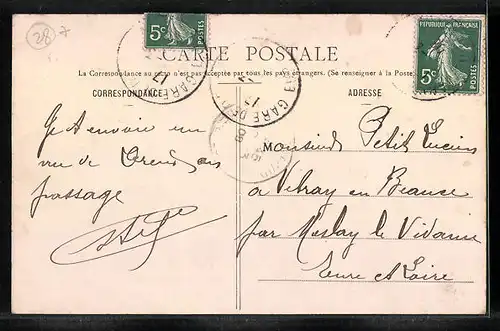 28
5c POSTES
RÉPUBLIQUE FRANÇAISE
5c POSTES
CARTE POSTALE
La Correspondance au recto n'est pas acceptée par tous les pays étrangers. (Se renseigner à la Poste)
CORRESPONDANCE
ADRESSE
GARE
GARE DE
09
Je t'envoie un
vue de Dreux en
passage
Monsieur Petit Lucien
a Vitray en Beauce
par Meslay le Vidame
Eure et Loire